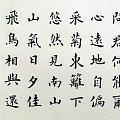 問君何能爾
心遠地自偏
采菊東籬下
悠然見南山
山氣日夕佳
飛鳥相與還